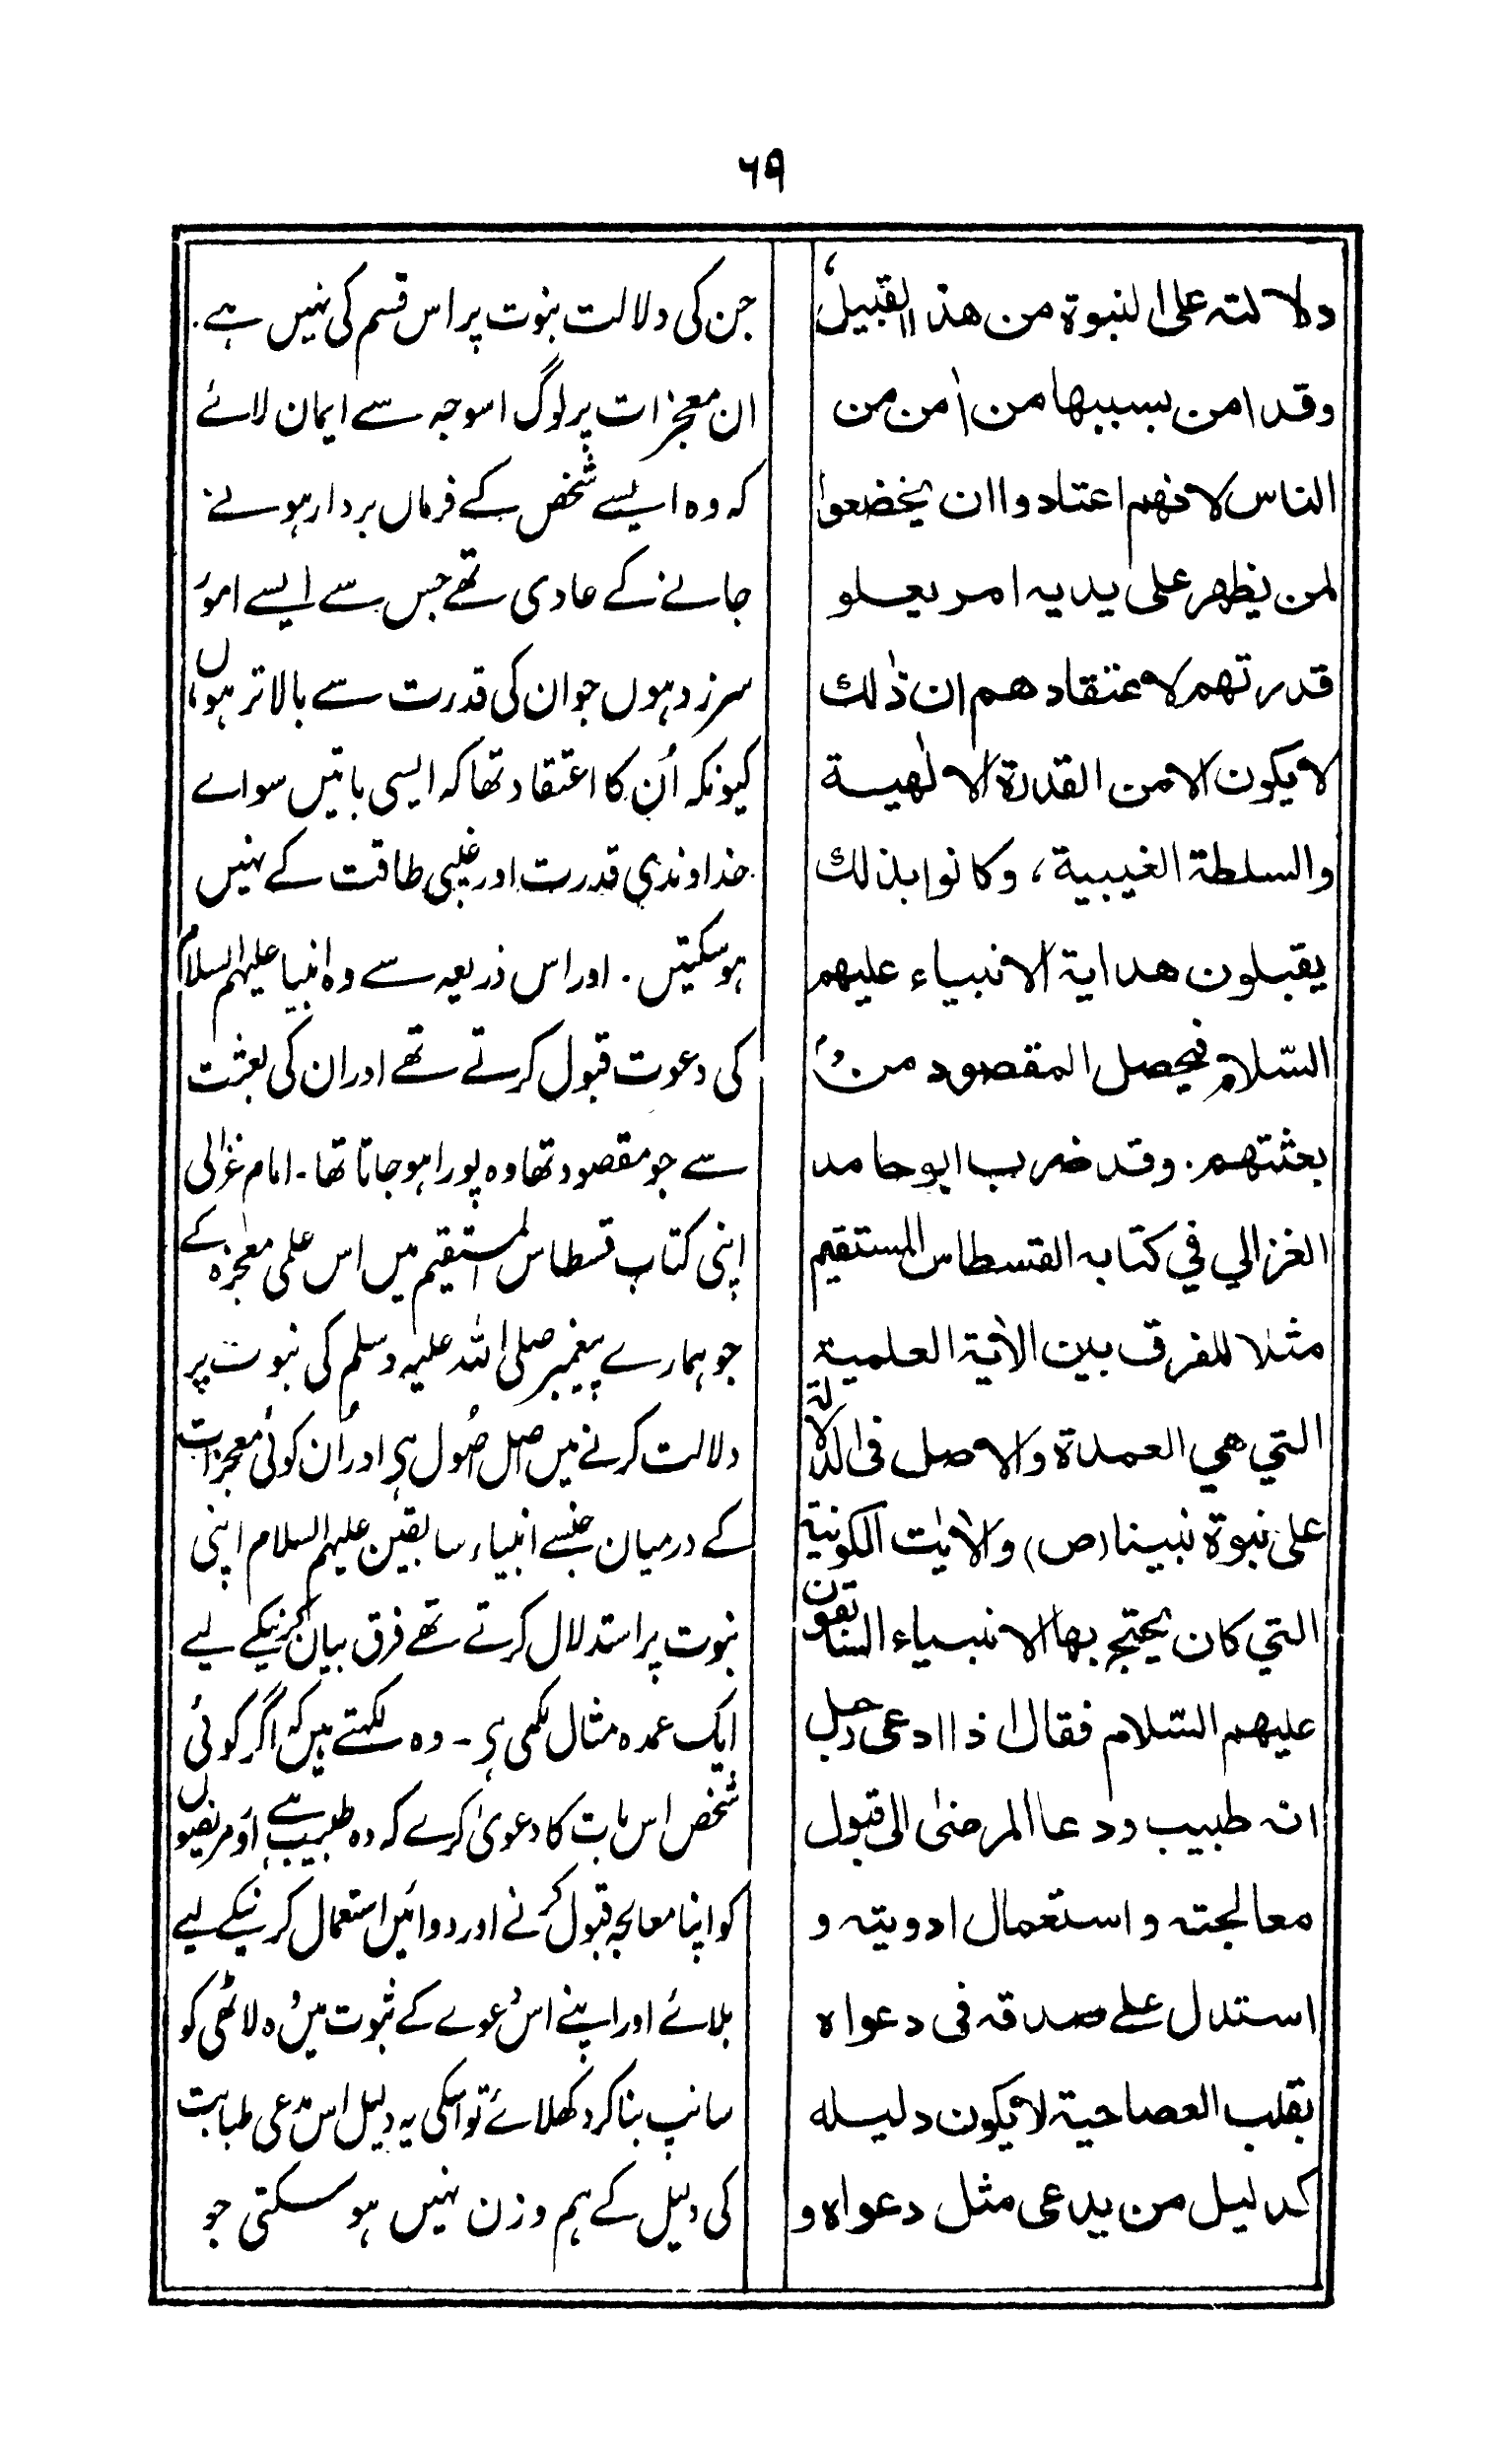 ۶۹
دلالته على النبوة من هذا القبيل،
وقد امن بسببها من اٰمن من
الناس لانهم اعتادوا ان يخضعوا
لمن يظهر على يديه امر يعلو
قدرتهم لاعتقادهم ان ذٰلك
لا يكون الا من القدرة الالٰهية
والسلطة الغيبية، وكانوا بذلك
يقبلون هداية الانبياء عليهم
السّلام فيحصل المقصود من
بعثتهم. وقد ضرب ابو حامد
الغزالي في كتابه القسطاس المستقيم
مثلا للفرق بين الاٰية العلمية
التي هي العمدة والاصل فى الدلالة
على نبوة نبينا (ص) والاٰيٰت الكونية
التي كان يحتج بها الانبياء السابقون
عليهم السّلام فقال اذا ادعى رجل
انه طبيب ودعا المرضىٰ الى قبول
معالجته واستعمال ادويته و
استدل على صدقه فى دعواه
بقلب العصا حية لا يكون دليله
كدليل من يدعى مثل دعواه و
جن کی دلالت نبوت پر اس قسم کی نہیں ہے۔
ان معجزات پر لوگ اسوجہ سے ایمان لائے
کہ وہ ایسے شخص کے فرماں بردار ہونے
جانے کے عادی تھے جس سے ایسے امور
سرزد ہوں جو ان کی قدرت سے بالاتر ہوں،
کیونکہ اُن کا اعتقاد تھا کہ ایسی باتیں سواے
خداوندی قدرت اور غیبی طاقت کے نہیں
ہو سکتیں۔ اور اس ذریعہ سے وہ انبیا علیہم السلام
کی دعوت قبول کرتے تھے اور ان کی بعثت
سے جو مقصود تھا وہ پورا ہو جاتا تھا۔ امام غزالی
اپنی کتاب قسطاس المستقیم میں اس علمی معجزہ کے
جو ہمارے پیغمبر صلی اللہ علیہ وسلم کی نبوت پر
دلالت کرنے میں اصل اصُول ہی اور اُن کونی معجزات
کے درمیان جنسے انبیاء سابقین علیہم السلام اپنی
نبوت پر استدلال کرتے تھے فرق بیان کرنیکے لیے
ایک عمدہ مثال لکھی ہی۔ وہ لکہتے ہیں کہ اگر کوئی
شخص اس بات کا دعویٰ کرے کہ وہ طبیب ہے اور مریضوں
کو اپنا معالجہ قبول کرنے اور دوائیں استعمال کرنیکے لیے
بلائے اور اپنے اس دعوے کے ثبوت میں وہ لاٹھی کو
سانپ بنا کر دکھلائے تو اسکی یہ دلیل اس مدعی طبابت
کی دلیل کے ہم وزن نہیں ہو سکتی جو